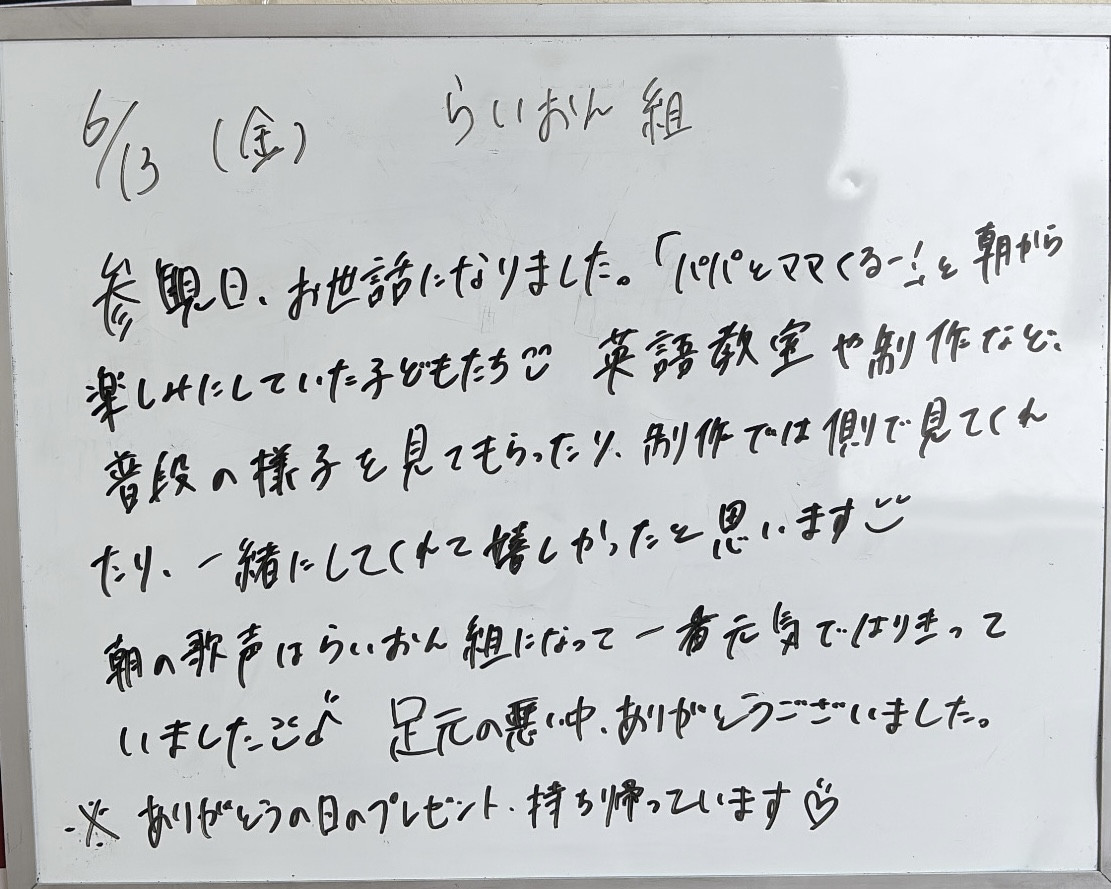 6/13 (金) らいおん組
参観日、お世話になりました。「パパとママくるー!」と朝から
楽しみにしていた子どもたち 英語教室や制作など、
普段の様子を見てもらったり、制作では側で見てくれ
たり、一緒にしてくれて嬉しかったと思います
朝の歌声はらいおん組になって一番元気ではりきって
いました♪ 足元の悪い中、ありがとうございました。
※ ありがとうの日のプレゼント、持ち帰っています♡